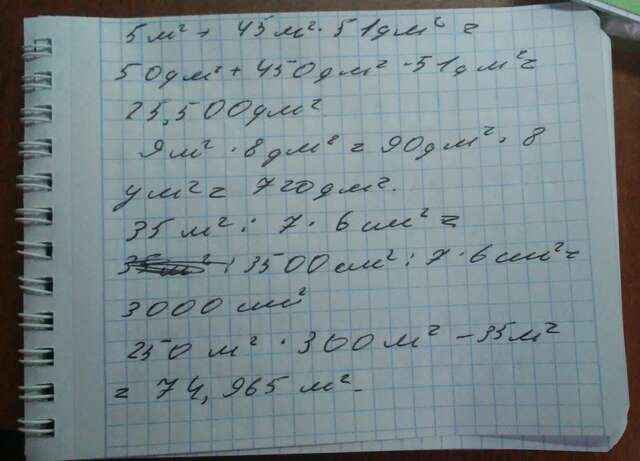 5 м² + 45 м² · 51 дм² =
50 дм² + 450 дм² · 51 дм² =
25,500 дм².
9 м² · 8 дм² = 90 дм² · 8
у м² = 720 дм².
35 м² : 7 · 6 см² =
: 3500 см² : 7 · 6 см² =
3000 см²
250 м² · 300 м² - 35 м²
= 74,965 м².